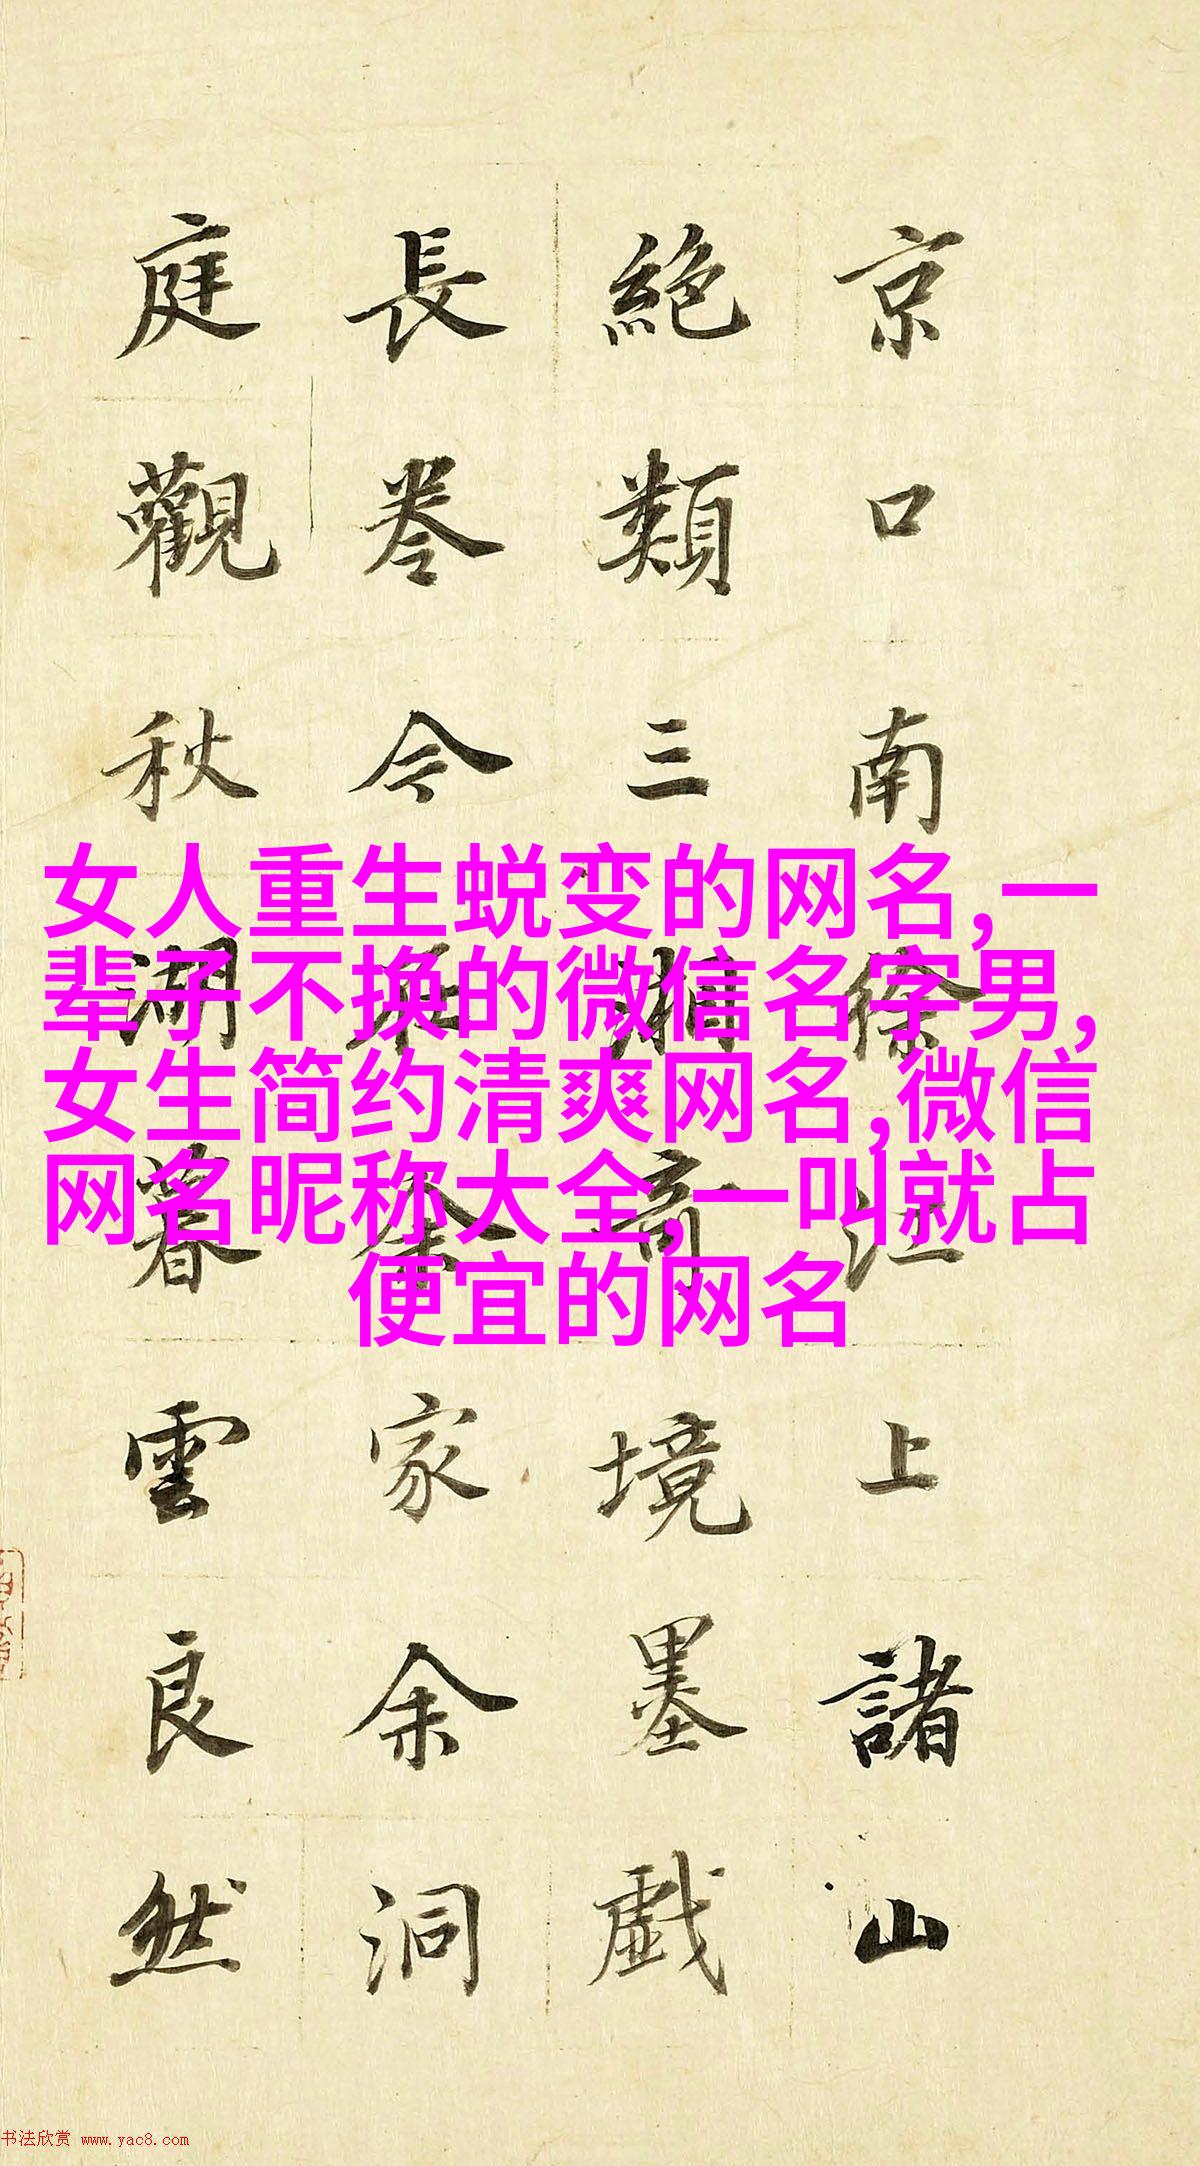 京口南徐江上諸山
絶類三湘奇境墨戲
長卷今余家余洞
庭觀秋湖暮雲良然
女人重生蜕变的网名,一
辈子不换的微信名字男,
女生简约清爽网名,微信
网名昵称大全,一叫就占
便宜的网名
书法欣赏 www.yac8.com